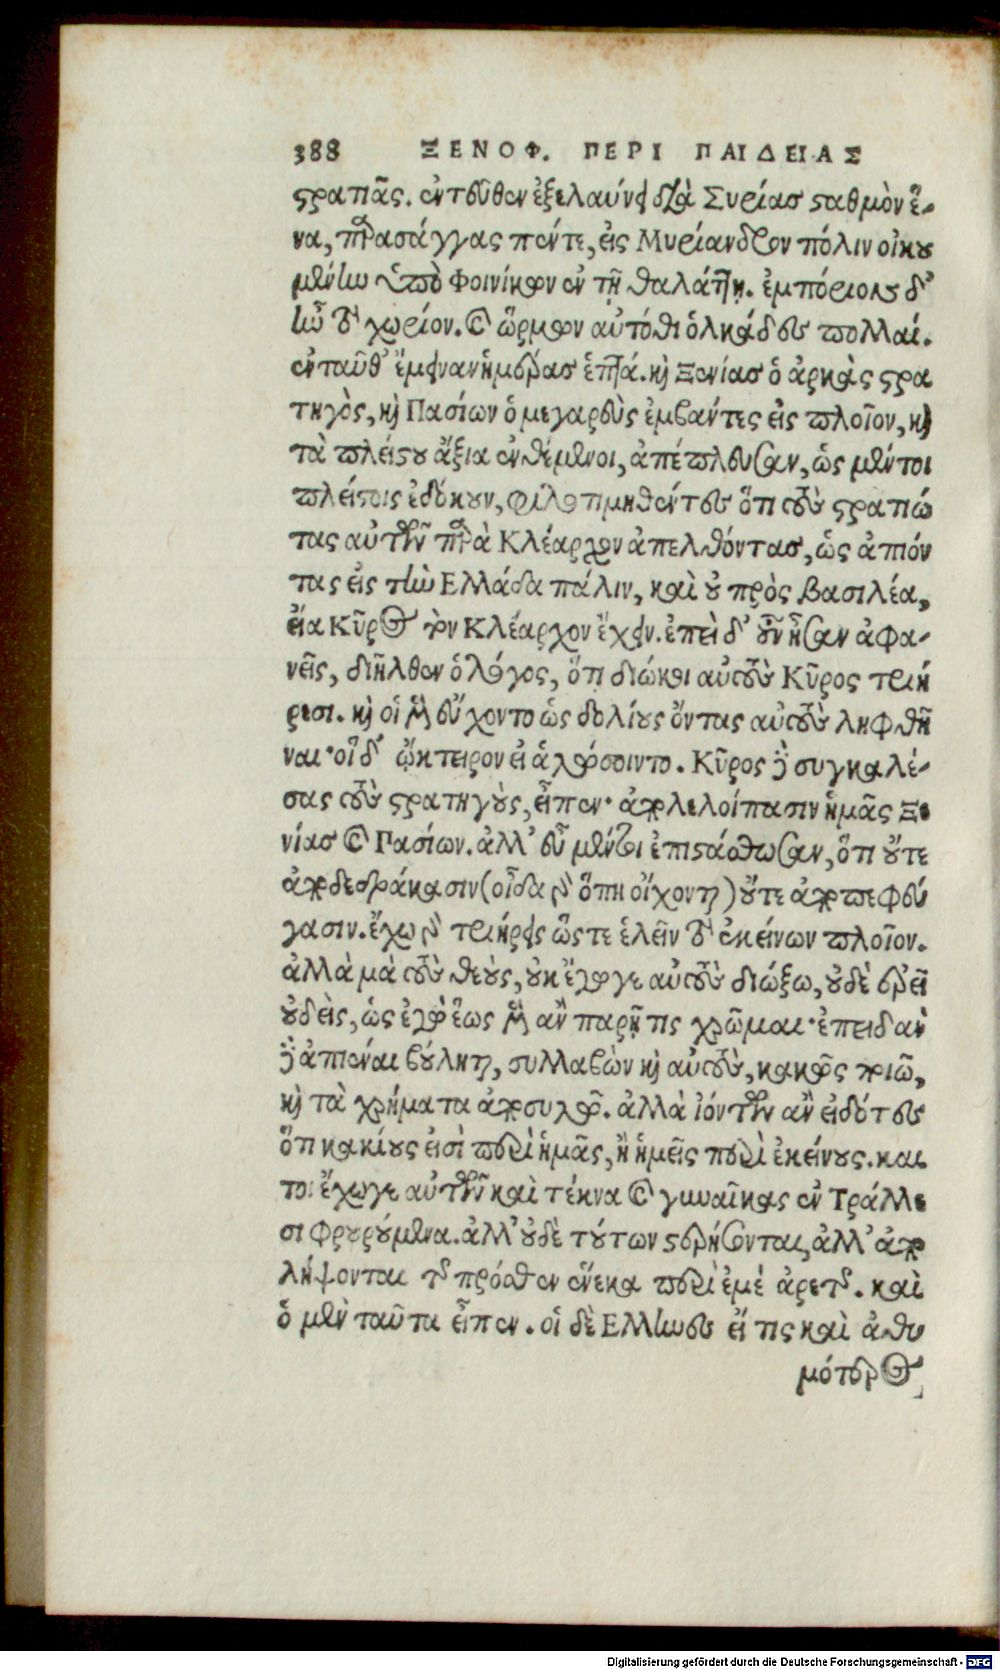 388 ΞΕΝΟΦ. ΠΕΡΙ ΠΑΙΔΕΙΑΣ
στρατιᾶς. ἐντεῦθεν ἐξελαύνει διὰ Συρίας σταθμὸν ἕ-
να, παρασάγγας πέντε, εἰς Μυρίανδρον πόλιν οἰκου
μένην ὑπὸ Φοινίκων ἐν τῇ θαλάττῃ. ἐμπόριον δ'
ἦν τὸ χωρίον. καὶ ὥρμων αὐτόθι ὁλκάδες πολλαί.
ἐνταῦθ' ἔμειναν ἡμέρας ἑπτά. καὶ Ξενίας ὁ ἀρκὰς στρα
τηγὸς, καὶ Πασίων ὁ μεγαρεὺς ἐμβάντες εἰς πλοῖον, καὶ
τὰ πλείστου ἄξια ἐνθέμενοι, ἀπέπλευσαν, ὡς μέντοι
πλείστοις ἐδόκουν, φιλοτιμηθέντες ὅτι τοὺς στρατιώ
τας αὐτῶν παρὰ Κλέαρχον ἀπελθόντας, ὡς ἀπιόν
τας εἰς τὴν Ελλάδα πάλιν, καὶ οὐ πρὸς βασιλέα,
εἴα Κῦρος τὸν Κλέαρχον ἔχειν. ἐπεὶ δ' οὖν ἦσαν ἀφα-
νεῖς, διῆλθεν ὁ λόγος, ὅτι διώκει αὐτοὺς Κῦρος τριή
ρεσι. καὶ οἱ μὲν εὔχοντο ὡς δολίους ὄντας αὐτοὺς ληφθῆ
ναι· οἳ δ' ᾤκτειρον εἰ ἁλώσοιντο. Κῦρος δὲ συγκαλέ-
σας τοὺς στρατηγοὺς, εἶπεν· ἀπολελοίπασιν ἡμᾶς Ξε
νίας καὶ Πασίων. ἀλλ' εὖ μέντοι ἐπιστάσθωσαν, ὅτι οὔτε
ἀποδεδράκασιν (οἶδα γὰρ ὅπη οἴχονται) οὔτε ἀποπεφεύ
γασιν. ἔχω γὰρ τριήρεις ὥστε ἑλεῖν τὸ ἐκείνων πλοῖον.
ἀλλὰ μὰ τοὺς θεοὺς, οὐκ ἔγωγε αὐτοὺς διώξω, οὐδὲ ἐρεῖ
οὐδεὶς, ὡς ἐγὼ ἕως μὲν ἂν παρῇ τις χρῶμαι· ἐπειδὰν
δὲ ἀπιέναι βούληται, συλλαβὼν καὶ αὐτοὺς, κακῶς ποιῶ,
καὶ τὰ χρήματα ἀποσυλῶ. ἀλλὰ ἰόντων ἂν εἰδότες
ὅτι κακίους εἰσὶ περὶ ἡμᾶς, ἢ ἡμεῖς περὶ ἐκείνους. και
τοι ἔχωγε αὐτῶν καὶ τέκνα καὶ γυναῖκας ἐν Τράλλε
σι φρουρούμενα. ἀλλ' οὐδὲ τούτων στερήσονται, ἀλλ' ἀπο
λήψονται τῆς πρόσθεν ἕνεκα περὶ ἐμέ ἀρετῆς. καὶ
ὁ μὲν ταῦτα εἶπεν. οἱ δὲ Ελληνες εἴ τις καὶ ἀθυ
μότερος
Digitalisierung gefördert durch die Deutsche Forschungsgemeinschaft - DFG